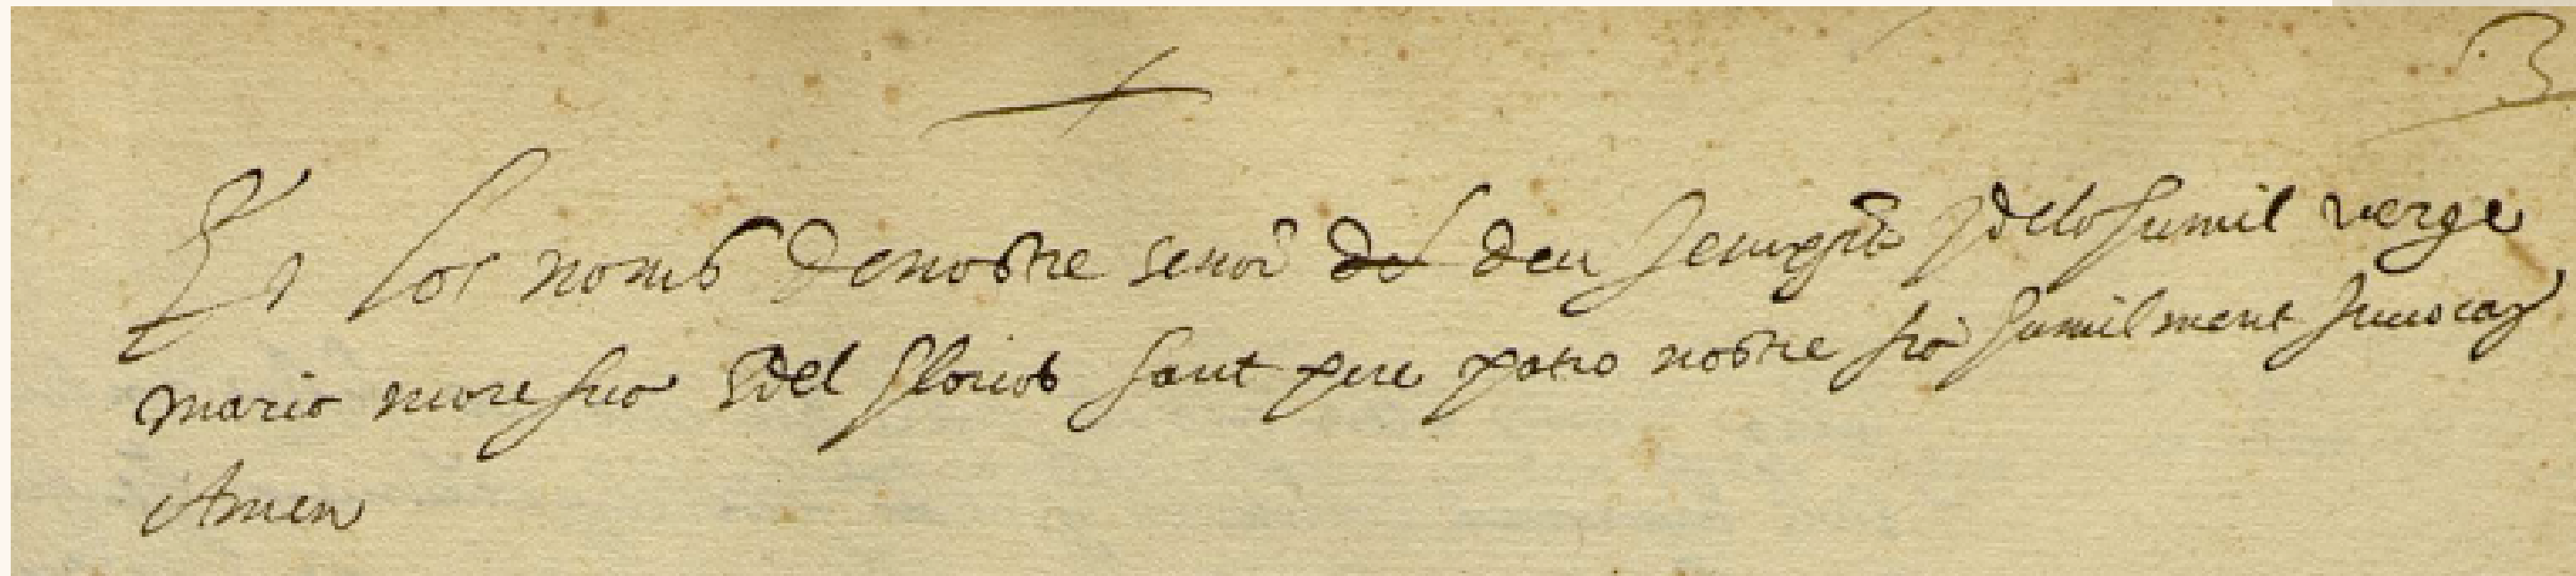 En los noms de nostre senor deu Jesucrist y de la humil verge
maria mare sua y del glorios sant pere patro nostre sia humilment invocat
Amen